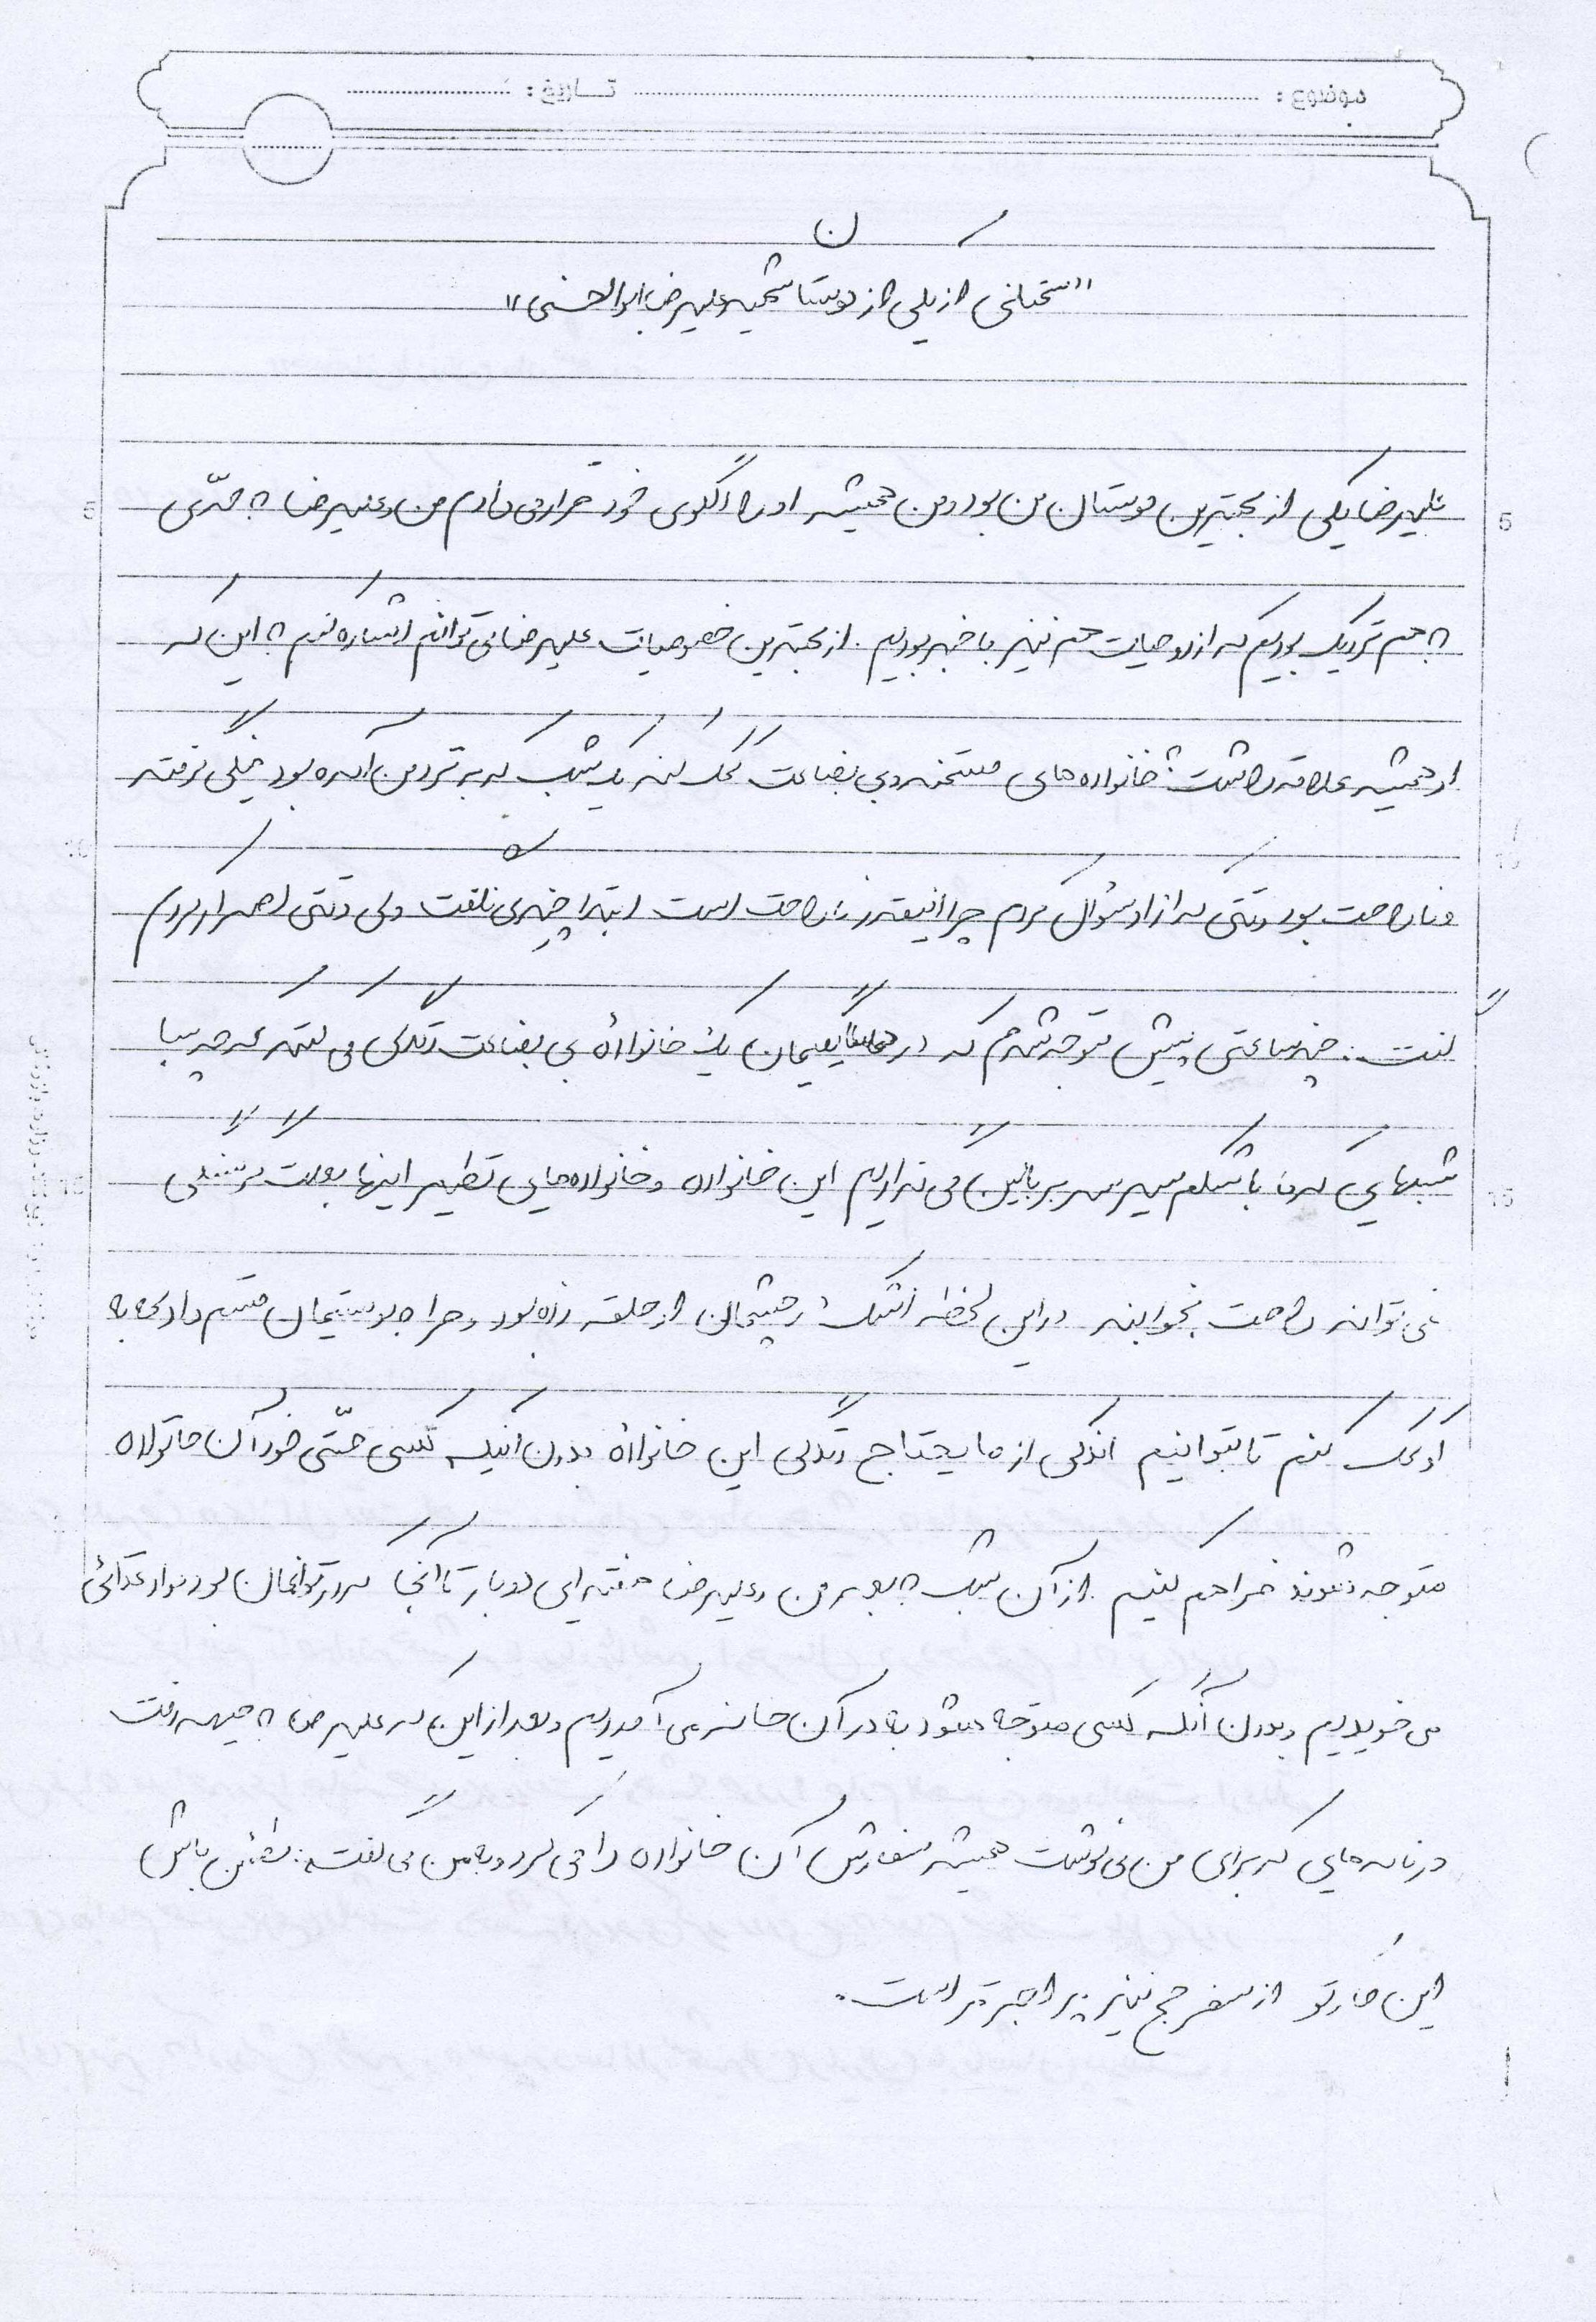 موضوع : تاریخ :
"سخنانی از یکی از دوستان شهید علیرضا ابوالحسنی"
علیرضا یکی از بهترین دوستان من بود و من همیشه او را الگوی خود قرار می دادم من و علیرضا به حدّی
به هم نزدیک بودیم که از روحیات هم نیز با خبر بودیم. از بهترین خصوصیات علیرضا می توانم اشاره کنم به این که
او همیشه علاقه داشت به خانواده های مستمند و بی بضاعت کمک کند یک شب که به نزد من آمده بود خیلی گرفته
و ناراحت بود وقتی که از او سؤال کردم چرا اینقدر ناراحت است ابتدا چیزی نگفت ولی وقتی اصرار کردم
گفت: چند ساعتی پیش متوجه شدم که در همسایگیمان یک خانوادۀ بی بضاعت زندگی می کنند که چه بسا
شبهایی که ما با شکم سیر سر بر بالین می گذاریم این خانواده و خانواده هایی نظیر اینها بعلت گرسنگی
نمی توانند راحت بخوابند در این لحظه اشک از چشمان او حلقه زده بود و مرا به دوستیمان قسم داد که به
او کمک کنم تا بتوانیم اندکی از مایحتاج زندگی این خانوادۀ بدون اینکه کسی حتّی خود آن خانواده
متوجه نشوند فراهم کنیم از آن شب به بعد من و علیرضا هفته ای دو بار تا آنجا که در توانمان بود مواد غذائی
می خریدیم و بدون آنکه کسی متوجه نشود به در آن خانه می آمدیم و بعد از این که علیرضا به جبهه رفت
در نامه هایی که برای من می نوشت همیشه سفارش آن خانواده را می کرد و به من می گفت: مطمئن باش
این کار تو از سفر حج نیز پر اجرتر است.